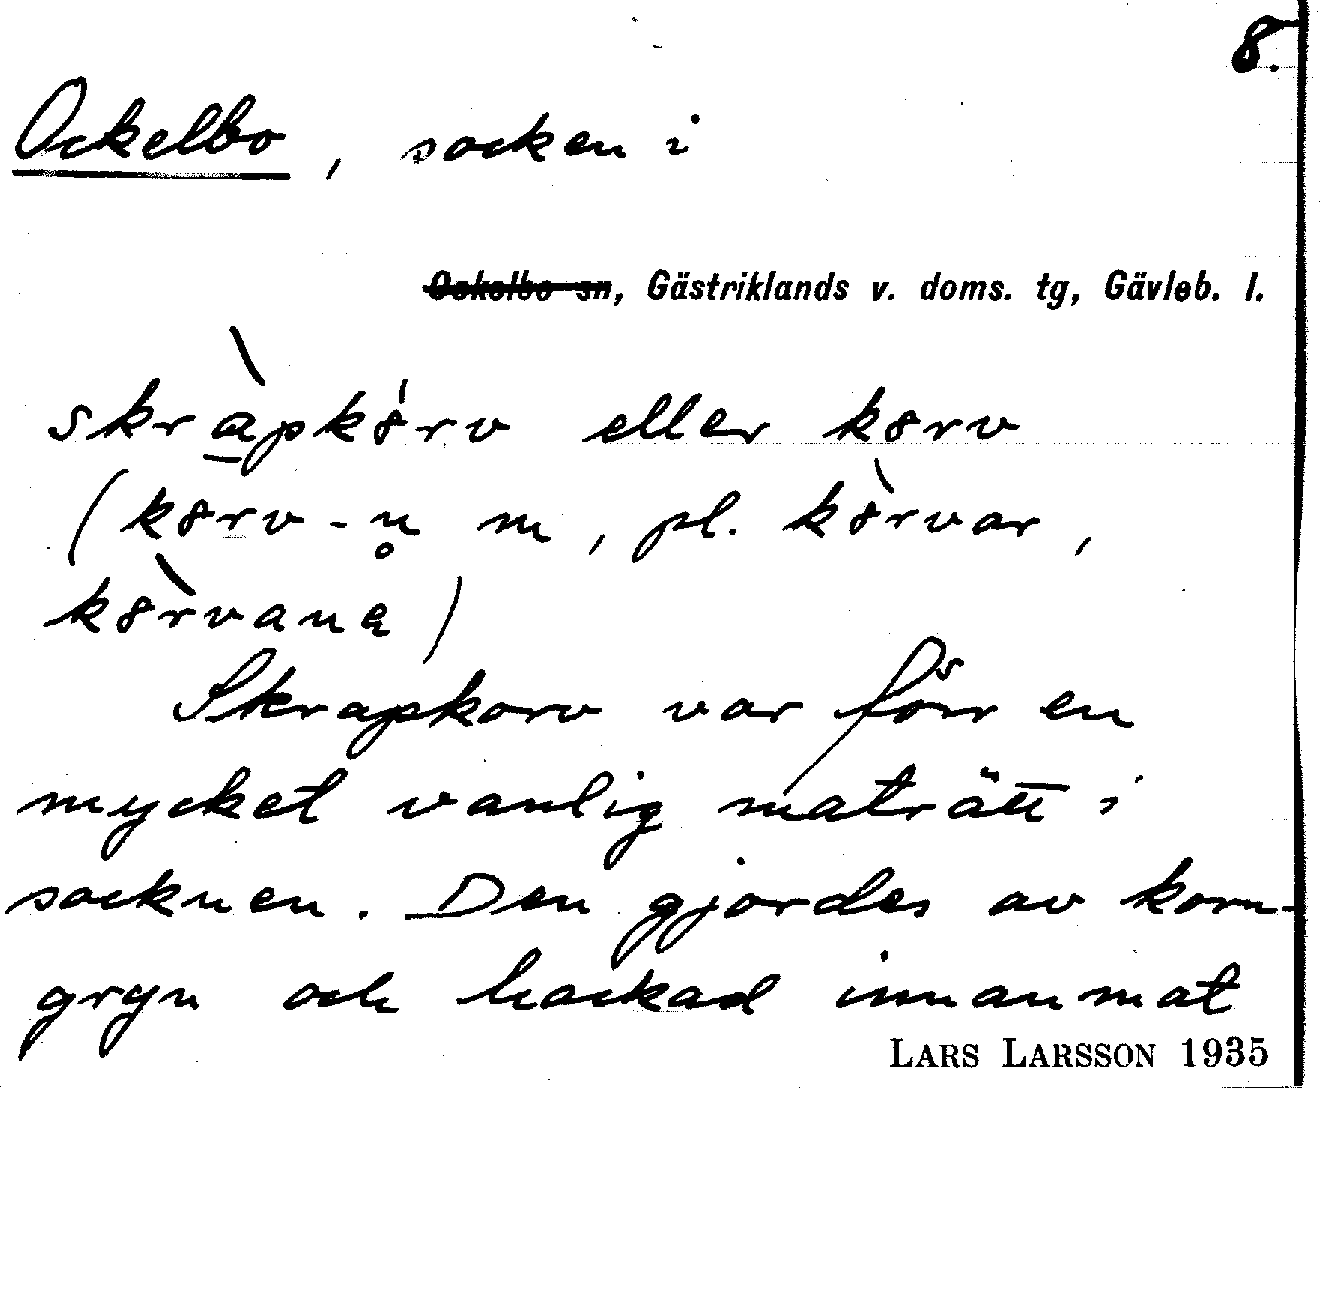 8.
Ockelbo, socken i
Ockelbo sn, Gästriklands v. doms. tg, Gävleb. l.
skràpkȯrv eller korv
(korv-n̥ m, pl. kòrvar,
kòrvanа)
Skrapkorv var förr en
mycket vanlig maträtt i
socknen. Den gjordes av korn-
gryn och hackad innanmat
LARS LARSSON 1935